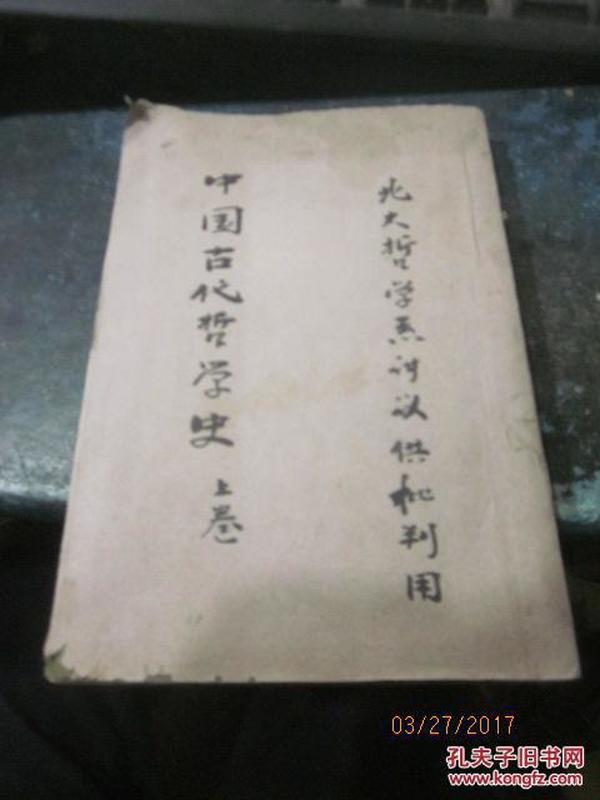 北大哲学系讲议供批判用
中国古代哲学史 上卷
03/27/2017
孔夫子旧书网
www.kongfz.com